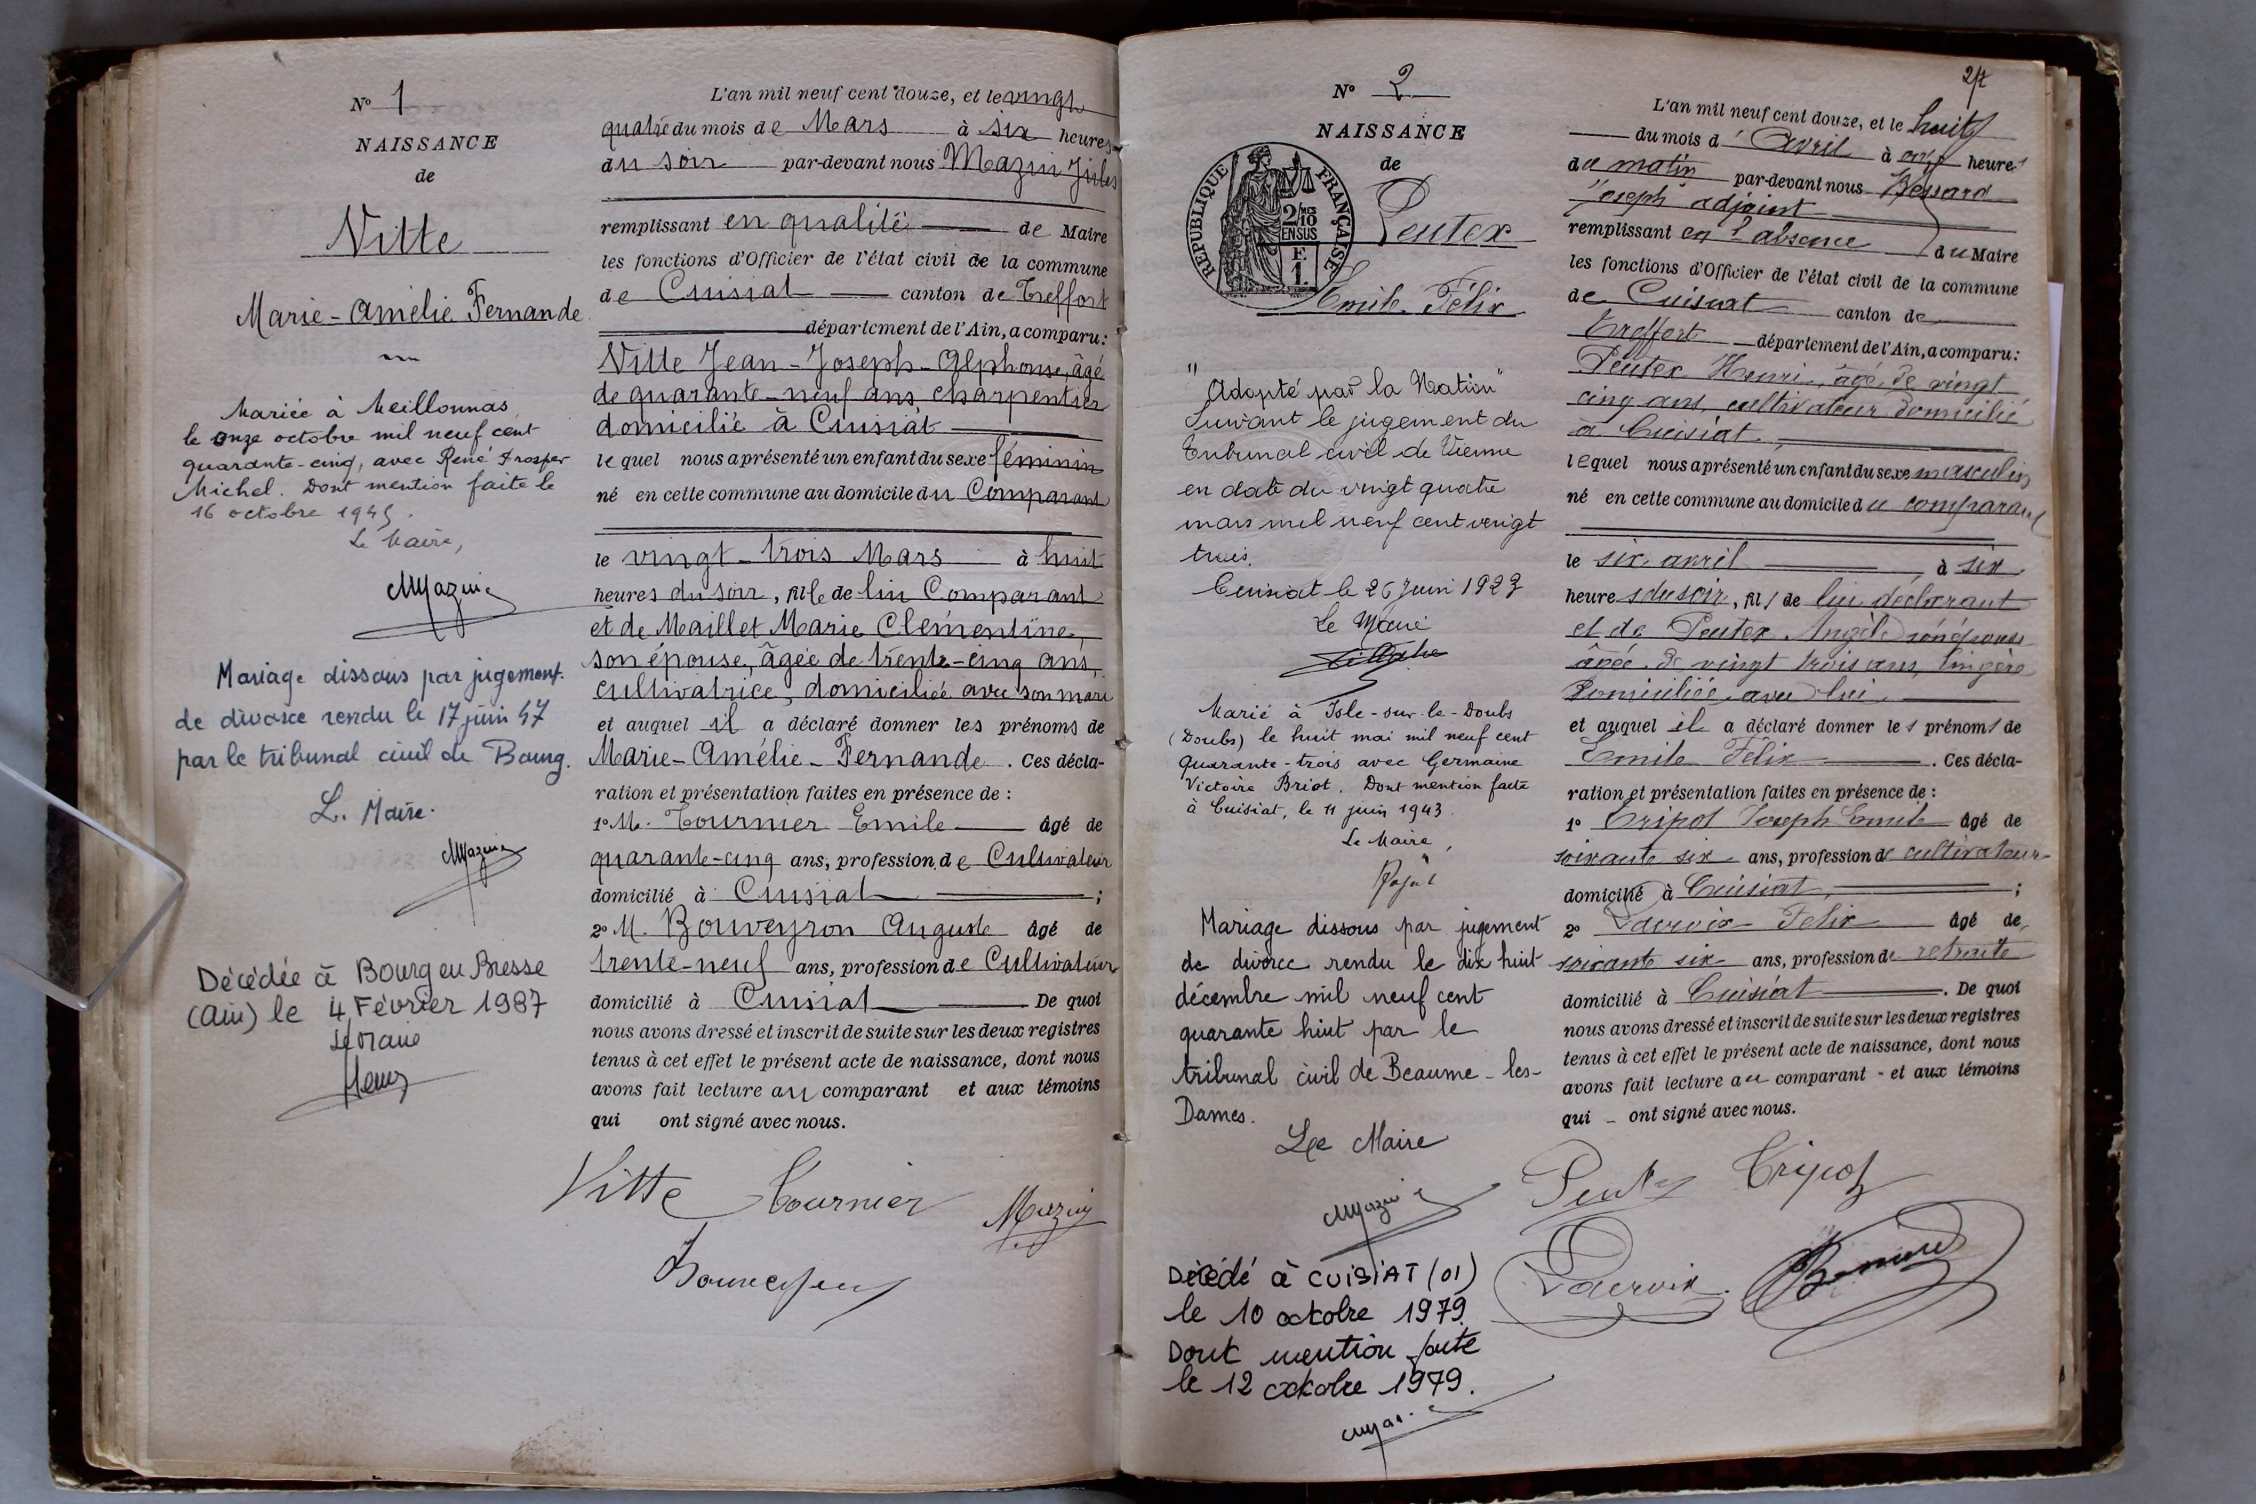 N° 1
NAISSANCE
de
Vitte
Marie-Amélie Fernande
Mariée à Meillonnas
le onze octobre mil neuf cent
quarante-cinq, avec René Prosper
Michel. Dont mention faite le
16 octobre 1945.
Le Maire,
Mariage dissous par jugement
de divorce rendu le 17 juin 47
par le tribunal civil de Bourg.
L. Maire.
Décédée à Bourg en Bresse
(Ain) le 4 Février 1987
Le Maire
L'an mil neuf cent douze, et le vingt
quatre du mois de Mars à six heures
du soir par-devant nous Mazuy Jules
remplissant en qualité de Maire
les fonctions d'Officier de l'état civil de la commune
de Cuisiat canton de Treffort
département de l'Ain, a comparu:
Vitte Jean-Joseph-Alphonse, âgé
de quarante-neuf ans charpentier
domicilié à Cuisiat
lequel nous a présenté un enfant du sexe féminin
né en cette commune au domicile du Comparant
le vingt-trois Mars à huit
heures du soir, fille de lui Comparant
et de Maillet Marie Clémentine,
son épouse, âgée de trente-cinq ans,
cultivatrice, domiciliée avec son mari
et auquel il a déclaré donner les prénoms de
Marie-Amélie-Fernande. Ces décla-
ration et présentation faites en présence de :
1° M. Tournier Emile âgé de
quarante-cinq ans, profession de Cultivateur
domicilié à Cuisiat ;
2° M. Bouveyron Auguste âgé de
trente-neuf ans, profession de Cultivateur
domicilié à Cuisiat De quoi
nous avons dressé et inscrit de suite sur les deux registres
tenus à cet effet le présent acte de naissance, dont nous
avons fait lecture au comparant et aux témoins
qui ont signé avec nous.
Vitte Tournier Mazuy
Bouveyron
2/2
N° 2
NAISSANCE
de
RÉPUBLIQUE FRANÇAISE
2/10
EN SUS
F
1.
Peutex
Emile Félix
"Adopté par la Nation"
Suivant le jugement du
Tribunal civil de Vienne
en date du vingt quatre
mars mil neuf cent vingt
trois.
Cuisiat le 26 Juin 1923
Le Maire
Marié à Isle-sur-le-Doubs
(Doubs) le huit mai mil neuf cent
quarante-trois avec Germaine
Victoire Briot. Dont mention faite
à Cuisiat, le 11 juin 1943.
Le Maire,
Mariage dissous par jugement
de divorce rendu le dix huit
décembre mil neuf cent
quarante huit par le
tribunal civil de Beaume-les-
Dames.
Le Maire
Décédé à CUISIAT (01)
le 10 octobre 1979.
Dont mention faite
le 12 octobre 1979.
L'an mil neuf cent douze, et le huit
du mois d'Avril à onze heures
du matin par-devant nous Bessard
Joseph adjoint
remplissant en l'absence du Maire
les fonctions d'Officier de l'état civil de la commune
de Cuisiat canton de
Treffort département de l'Ain, a comparu:
Peutex Henri, âgé de vingt
cinq ans, cultivateur domicilié
à Cuisiat.
lequel nous a présenté un enfant du sexe masculin
né en cette commune au domicile du comparant
le six avril à six
heures du soir, fils de lui déclarant
et de Peutex Angèle son épouse
âgée de vingt trois ans, lingère
domiciliée avec lui.
et auquel il a déclaré donner les prénoms de
Emile Félix. Ces décla-
ration et présentation faites en présence de :
1° Tripoz Joseph Emile âgé de
soixante six ans, profession de cultivateur
domicilié à Cuisiat, ;
2° Lacroix Félix âgé de
soixante six ans, profession de retraité
domicilié à Cuisiat. De quoi
nous avons dressé et inscrit de suite sur les deux registres
tenus à cet effet le présent acte de naissance, dont nous
avons fait lecture au comparant - et aux témoins
qui - ont signé avec nous.
Peutex Tripoz
Lacroix